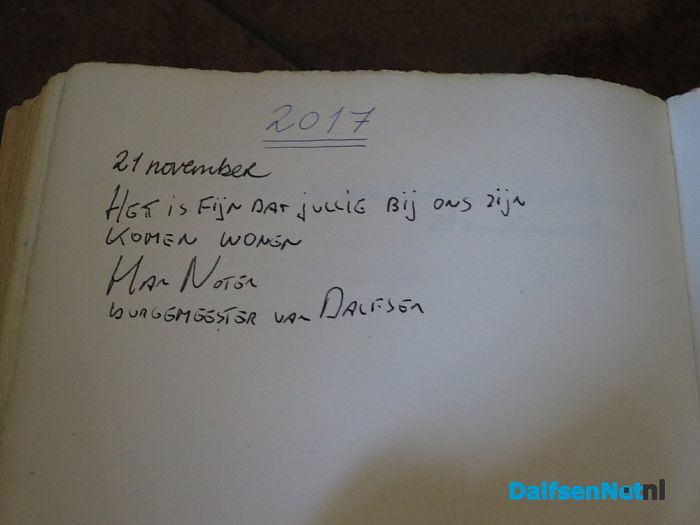 2017
21 november
HET is Fijn DAT jullie Bij ons zijn
KOMEN WONEN
HAN NOTEN
burgemeester van DALFSEN
DalfsenNet.nl